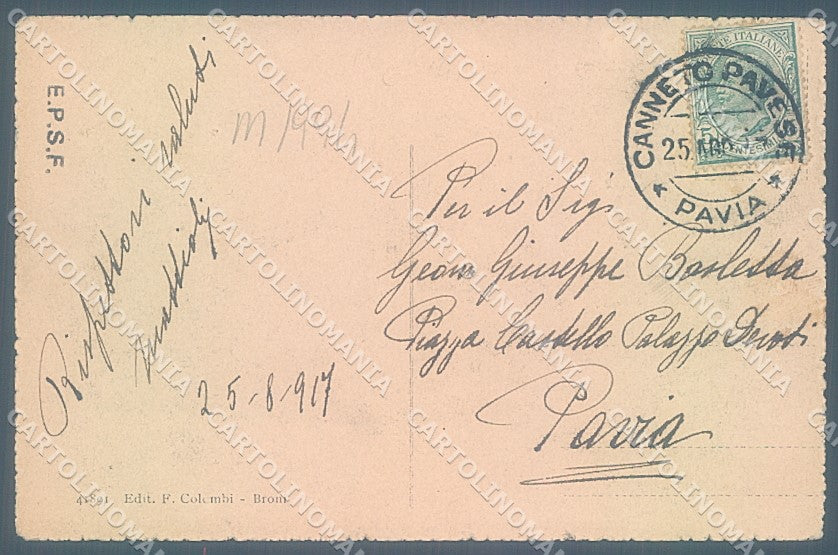 E.P.S.F.
Rispettosi saluti
25-8-917
Per il Sig.
Geom Giuseppe
Piazza Castello Palazzo
Pavia
CANNETO PAVESE
25 AGO
PAVIA
POSTE ITALIANE
Edit. F. Colombi - Broni
CARTOLINOMANIA